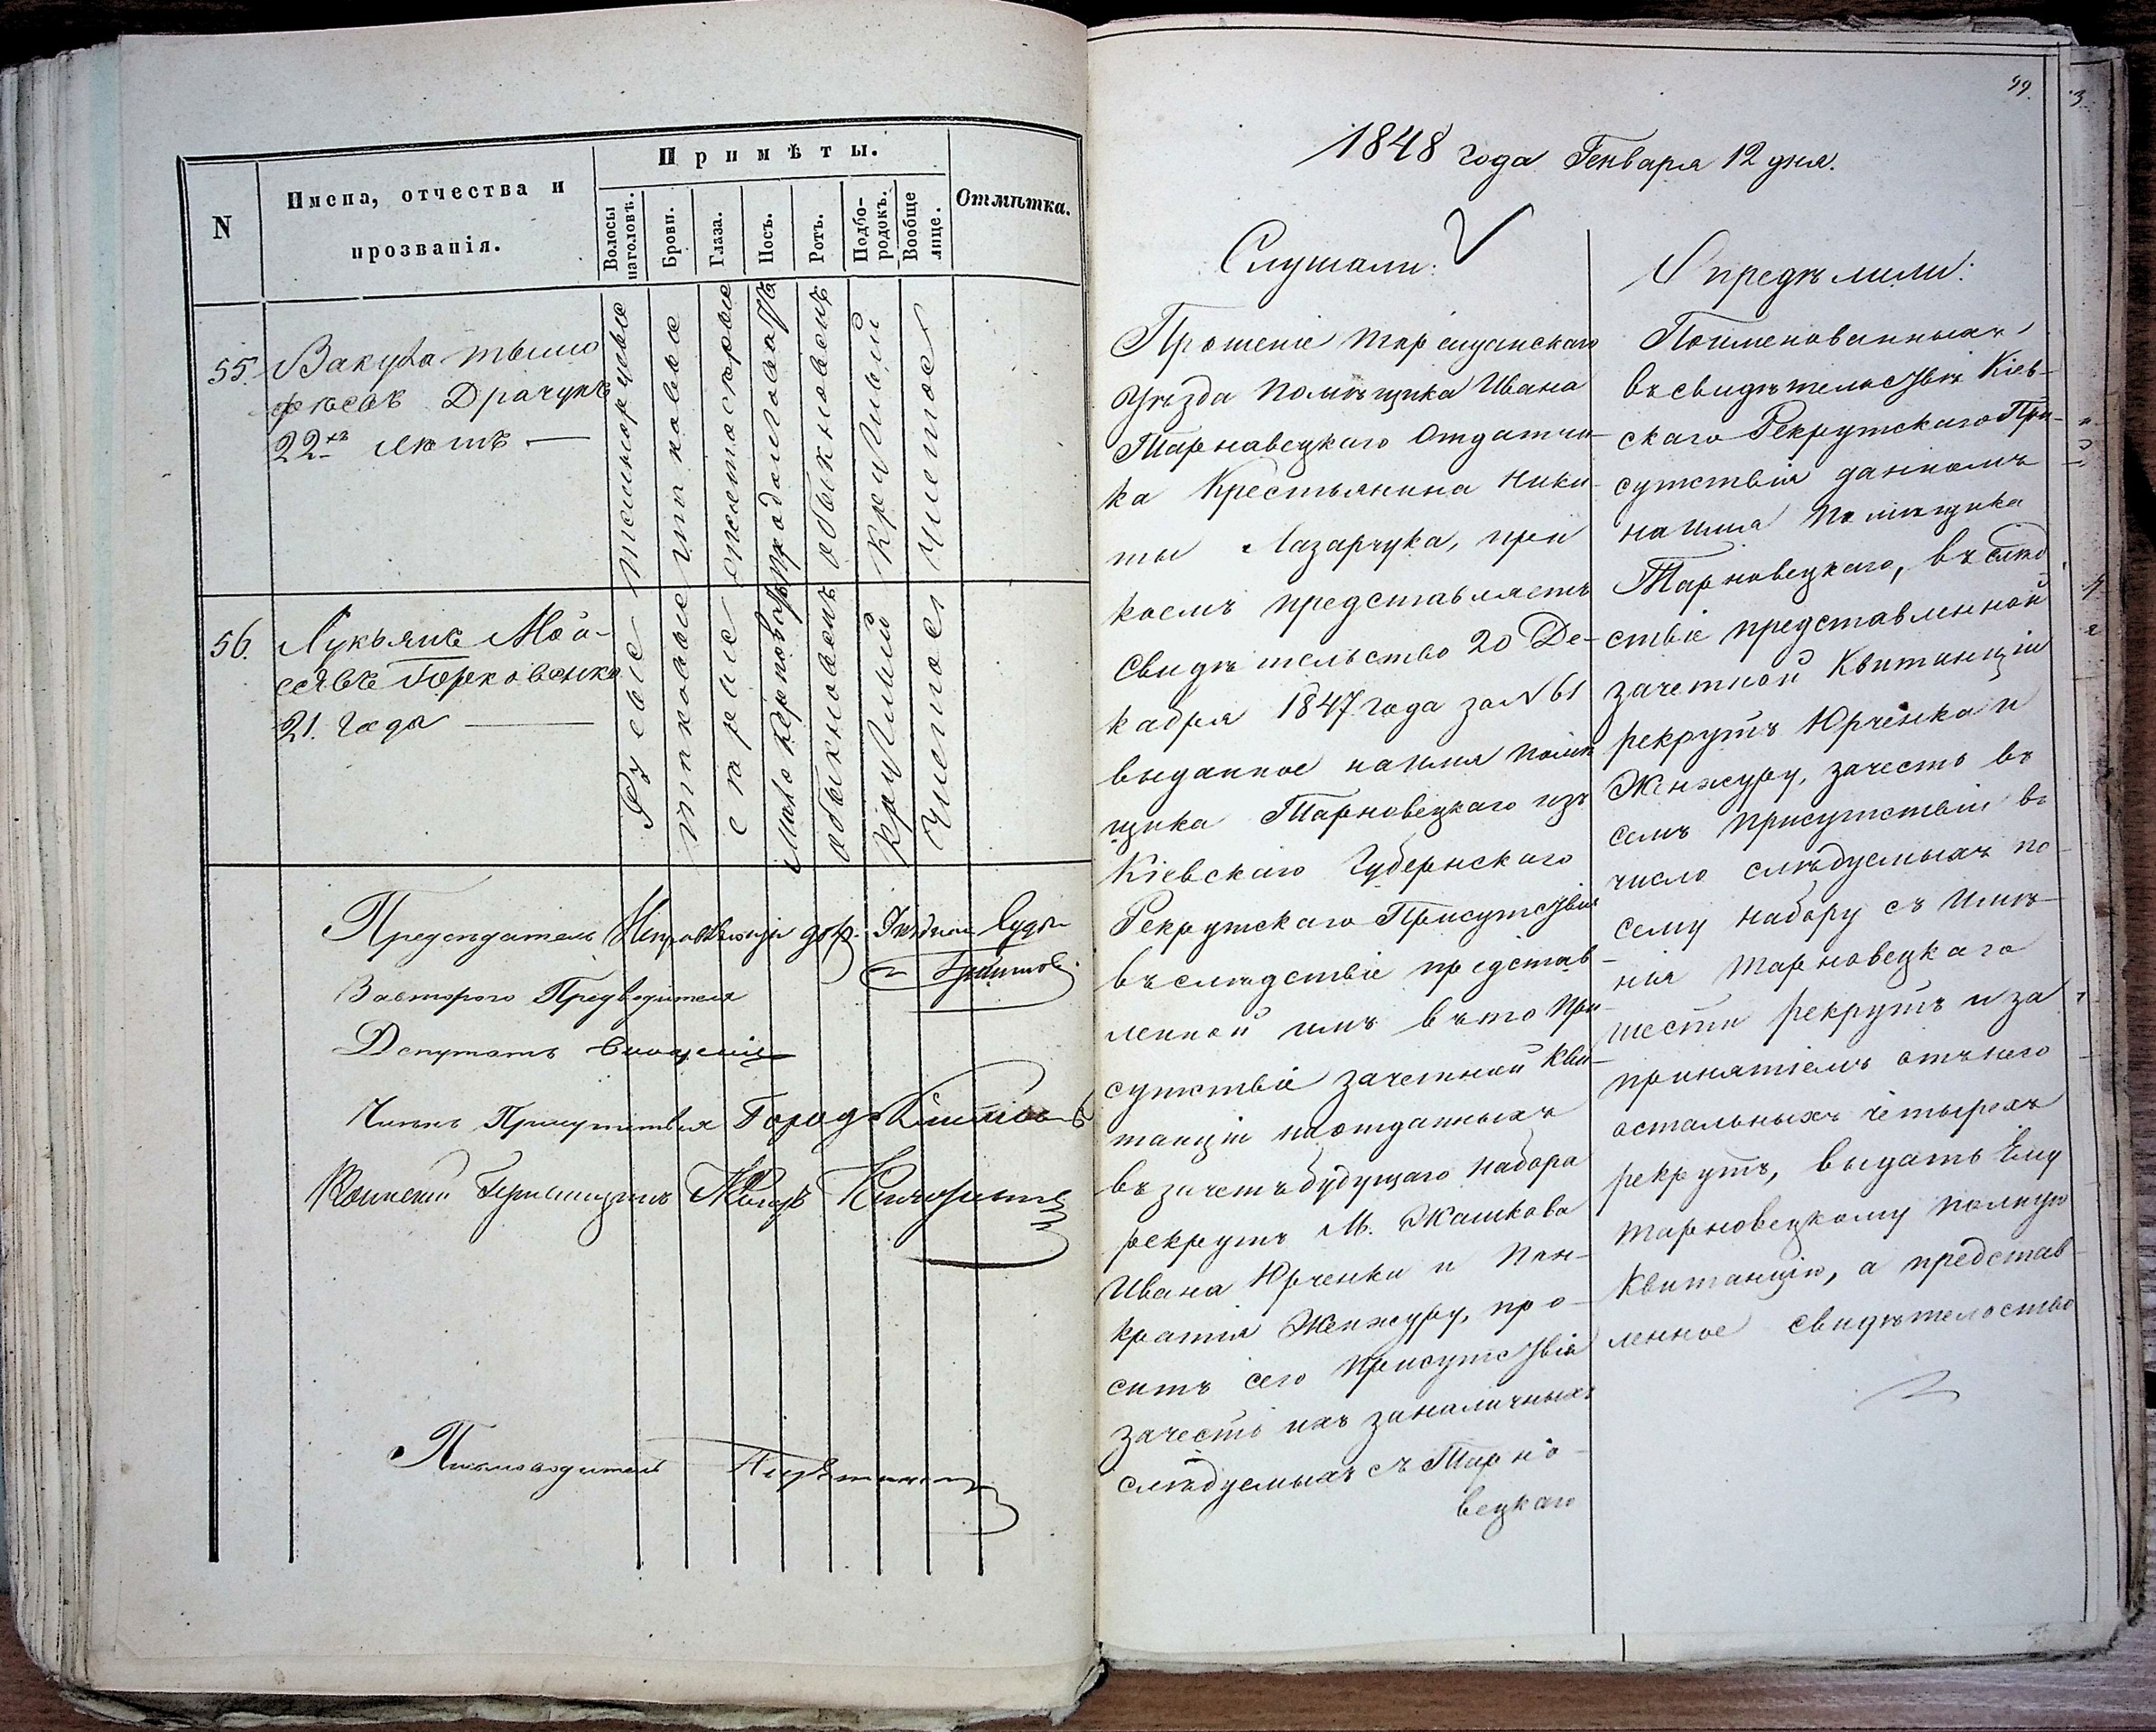 N
Имена, отчества и
прозванія.
Примѣты.
Волосы
наголовѣ.
Брови.
Глаза.
Носъ.
Ротъ.
Подбо-
родокъ.
Вообще
лице.
Отмѣтка.
55.
Вакула Тымо
фѣевъ Драчукъ
22хъ лѣтъ —
темнорусые
таковые
обыкновенъ
круглый
чистое
56.
Лукьянъ Мои-
сѣевъ Горковенко
21. года —
Русые
таковые
карие
обыкновенъ
круглый
чистое
Предсѣдатель Исправляющій долж. Уѣздный Судья
Завторого Предводителя
Депутатъ
Членъ Присутствія Город.
Военный Пріемщикъ Маіоръ
Письмоводитель
99.
1848 года Генваря 12 дня.
Слушали:
Прошеніе Таращанскаго
Уѣзда Помѣщика Ивана
Тарнавецкаго Отдатчи-
ка Крестьянина Ники-
ты Лазарчука, при
коемъ представляетъ
Свидѣтельство 20 Де-
кабря 1847 года за N 61
выданное на имя помѣ
щика Тарновецкаго изъ
Кіевскаго Губернскаго
Рекрутскаго Присутствія
въслѣдствіе представ-
ленной имъ въ то При-
сутствіе зачетной Кви-
танціи на отданныхъ
въ зачетъ будущаго набора
рекрутъ М. Жашкова
Ивана Юрченка и Пан-
кратія Женжуру, про-
ситъ сего Присутствія
зачесть ихъ за наличныхъ
слѣдуемыхъ съ Тарно-
вецкаго
Опредѣлили:
Поименованныхъ
въ свидѣтельствѣ Кіев-
скаго Рекрутскаго При-
сутствія данномъ
на имя Помѣщика
Тарновецкаго, въ слѣд
ствіе представленной
зачетной Квитанціи
рекрутъ Юрченка и
Женжуру, зачесть въ
семъ присутствіи въ
число слѣдуемыхъ по
сему набору съ имѣ-
нія Тарновецкаго
шести рекрутъ и за
принятіемъ отънего
остальныхъ четырехъ
рекрутъ, выдать Ему
Тарновецкому полную
Квитанцію, а представ-
ленное свидѣтельство